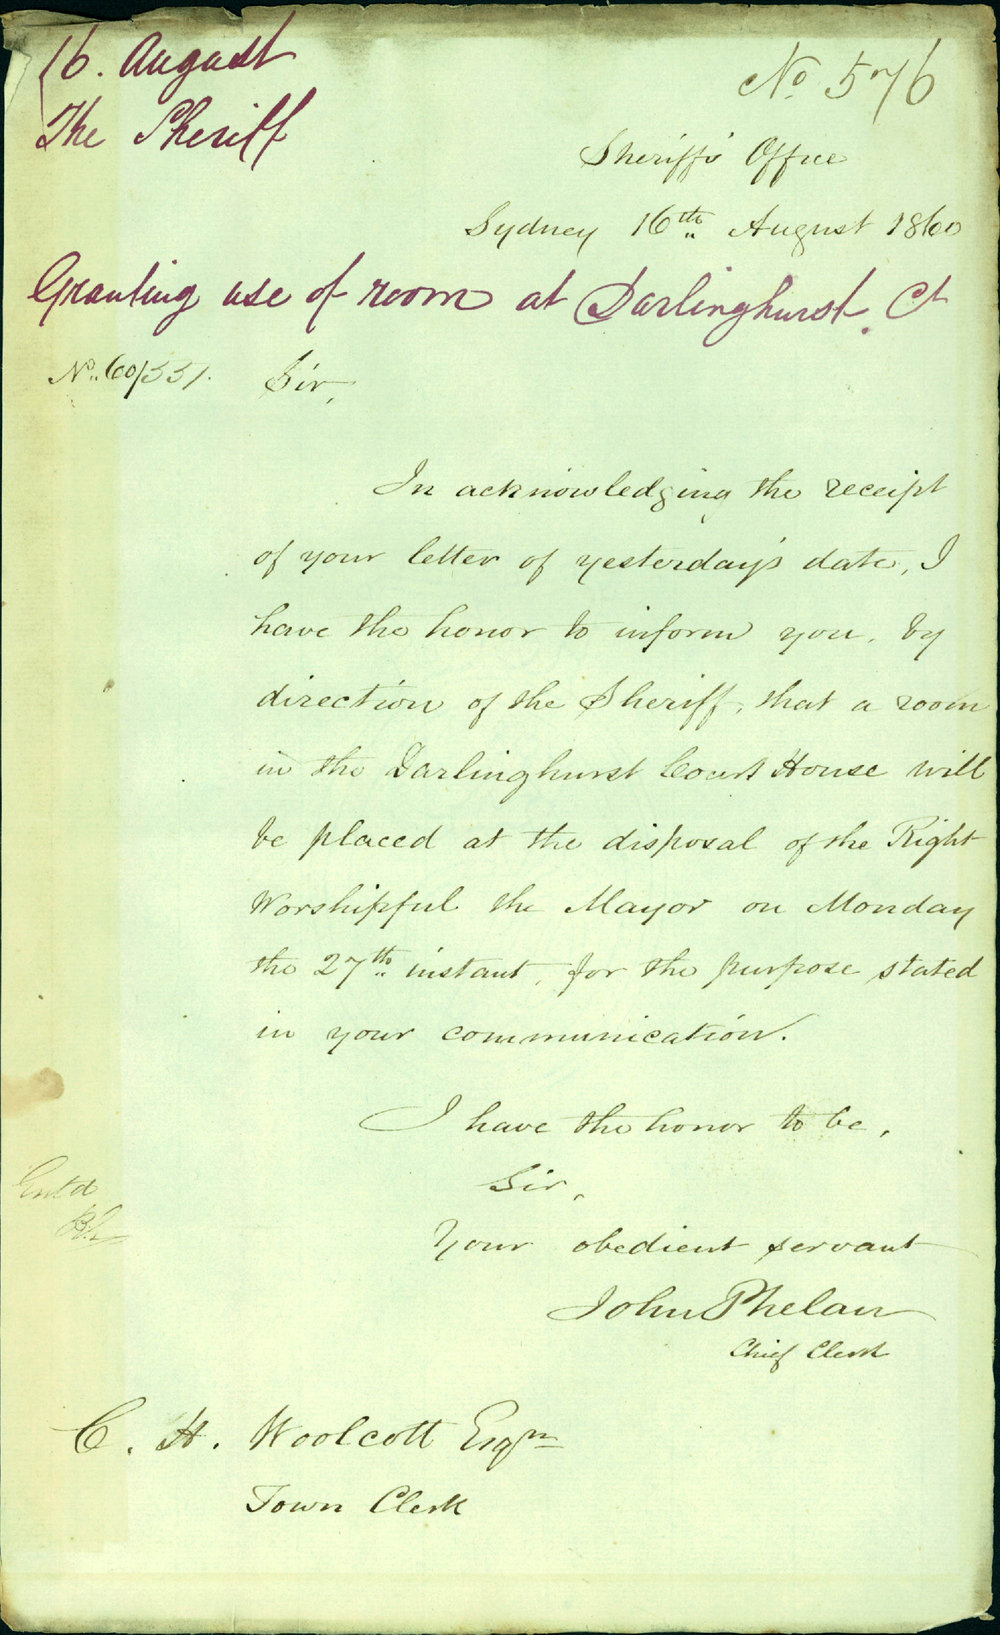 16. August
The Sheriff
No 576
Sheriff's Office
Sydney 16th August 1860
Granting use of room at Darlinghurst Ct
No. 60/551.
Sir,
In acknowledging the receipt
of your letter of yesterday's date, I
have the honor to inform you, by
direction of the Sheriff, that a room
in the Darlinghurst Court House will
be placed at the disposal of the Right
Worshipful the Mayor on Monday
the 27th instant, for the purpose stated
in your communication.
I have the honor to be,
Sir,
Your obedient servant
John Phelan
Chief Clerk
Ent'd
C. H. Woolcott Esqre
Town Clerk